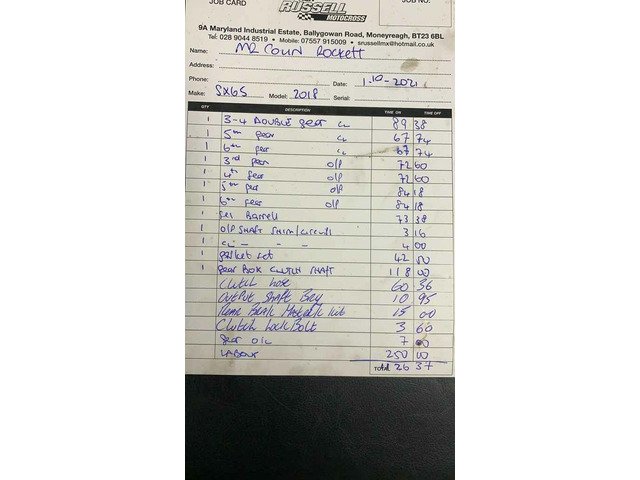 JOB CARD
JOB NO:
RUSSELL
MOTOCROSS
9A Maryland Industrial Estate, Ballygowan Road, Moneyreagh, BT23 6BL
Tel: 028 9044 8519 • Mobile: 07557 915009 • srussellmx@hotmail.co.uk
Name: MR Colin Rockett
Address:
Phone: Date: 1-10-2021
Make: SX65 Model: 2018 Serial:
QTY DESCRIPTION TIME ON TIME OFF
1 3-4 DOUBLE gear CL 89 38
1 5th gear CL 67 74
1 6th gear CL 67 74
1 3rd gear O/P 72 60
1 4th gear O/P 72 60
1 5th gear O/P 84 18
1 6th gear O/P 84 18
1 Sel Barrell 73 38
1 O/P SHAFT SHIM/circlip 3 16
1 CL - - - 4 00
1 gasket set 42 50
1 gear BOX CLUTCH SHAFT 118 00
Clutch hose 60 36
Output Shaft Brg 10 95
Rear Brake kit 15 00
Clutch Lock Bolt 3 60
gear OIL 7 00
LABOUR 250 00
TOTAL 1126 37